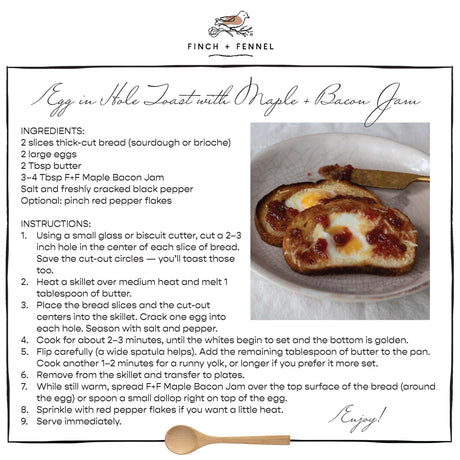 FINCH + FENNEL
Egg in Hole Toast with Maple + Bacon Jam
INGREDIENTS:
2 slices thick-cut bread (sourdough or brioche)
2 large eggs
2 Tbsp butter
3–4 Tbsp F+F Maple Bacon Jam
Salt and freshly cracked black pepper
Optional: pinch red pepper flakes
INSTRUCTIONS:
1. Using a small glass or biscuit cutter, cut a 2–3
inch hole in the center of each slice of bread.
Save the cut-out circles — you'll toast those
too.
2. Heat a skillet over medium heat and melt 1
tablespoon of butter.
3. Place the bread slices and the cut-out
centers into the skillet. Crack one egg into
each hole. Season with salt and pepper.
4. Cook for about 2–3 minutes, until the whites begin to set and the bottom is golden.
5. Flip carefully (a wide spatula helps). Add the remaining tablespoon of butter to the pan.
Cook another 1–2 minutes for a runny yolk, or longer if you prefer it more set.
6. Remove from the skillet and transfer to plates.
7. While still warm, spread F+F Maple Bacon Jam over the top surface of the bread (around
the egg) or spoon a small dollop right on top of the egg.
8. Sprinkle with red pepper flakes if you want a little heat.
9. Serve immediately.
Enjoy!